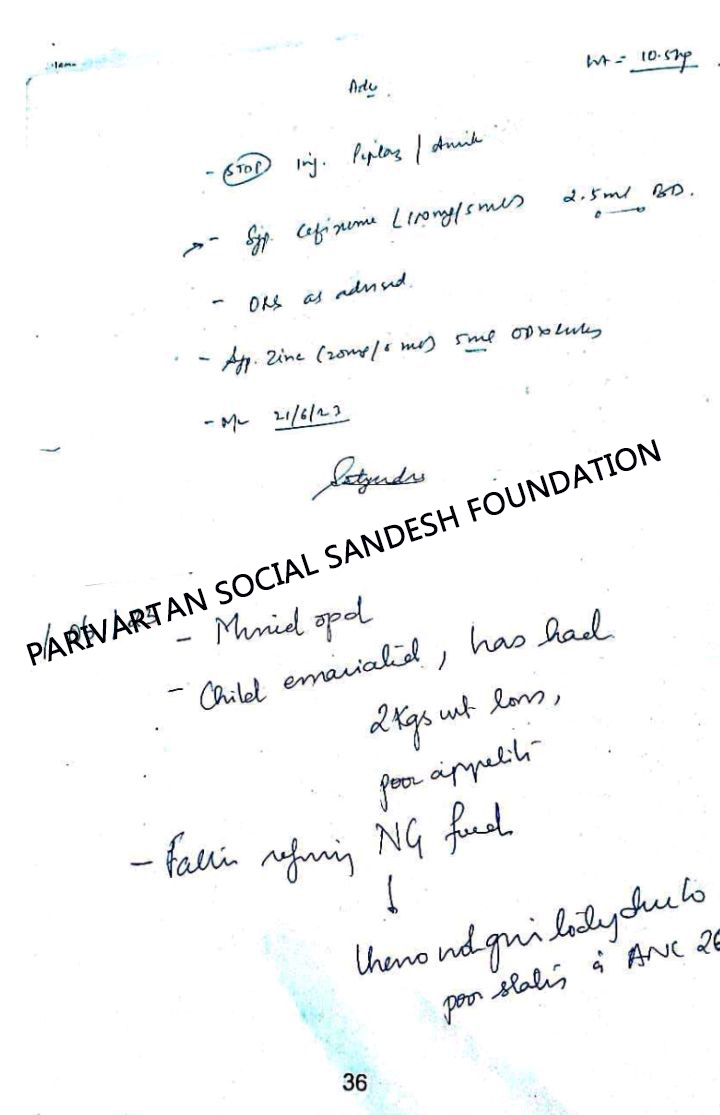 Wt = 10.5kg
Adv.
- STOP Inj. Piptaz / Amik
- Syp. Cefixime (100mg/5ml) 2.5ml BD.
- ORS as advised.
- Syp. Zinc (20mg/5ml) 5ml OD x
- 21/6/23
Satyendra
PARIVARTAN SOCIAL SANDESH FOUNDATION
- opd
- Child emaciated, has had
2Kgs wt loss,
poor appetite
- Father refusing NG feed
↓
Chemo not given today due to
poor status ANC 26
36